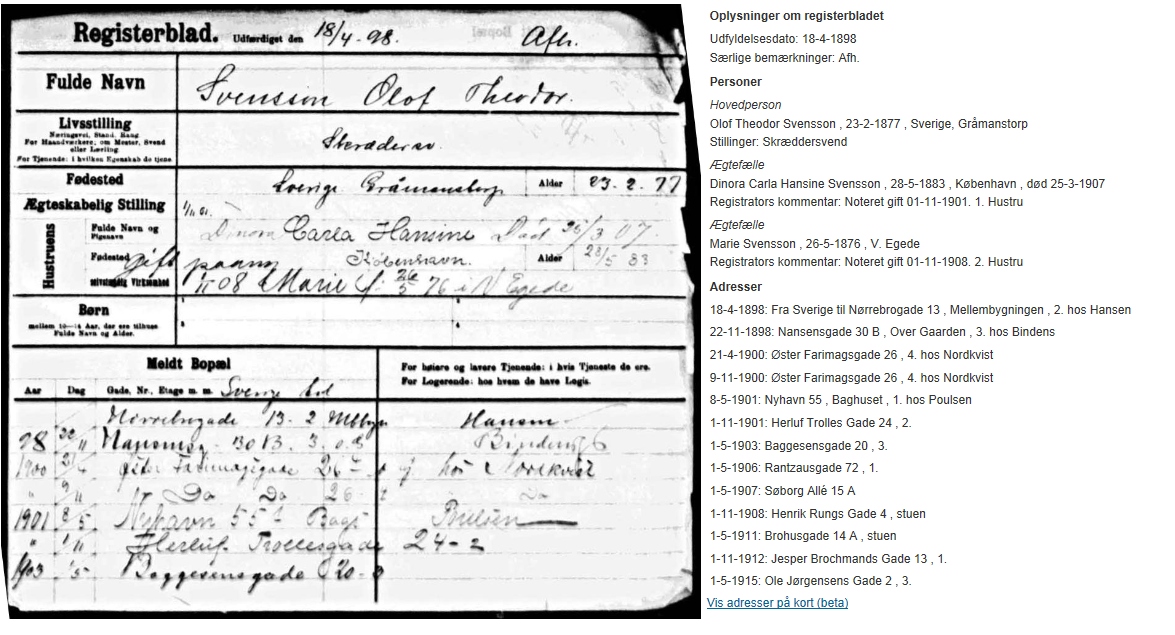 Registerblad. Udfærdiget den 18/4-98. Afh.
Fulde Navn
Svensson Olof Theodor.
Livsstilling
Næringsvei, Stand, Rang
For Haandværkere; om Mester, Svend
eller Lærling
For Tjenende: i hvilken Egenskab de tjene
Skrædersv.
Fødested
Sverige Gråmanstorp
Alder 23.2.77
Ægteskabelig Stilling
1/11 01.
Hustruens
Fulde Navn og
Pigenavn
Dinora Carla Hansine Død 25/3 07.
Fødested
Kjøbenhavn.
Alder 28/5 83
gift paany
Selvstændig Virksomhed
1/11 08 Marie f. 26/5 76 i V Egede
Børn
mellem 10–14 Aar, der ere tilhuse
Fulde Navn og Alder.
Meldt Bopæl
For høiere og lavere Tjenende: i hvis Tjeneste de ere.
For Logerende: hos hvem de have Logis.
Aar Dag Gade, Nr., Etage m. m. Sverige
Nørrebrogade 13. 2 Mbbyn Hansen
98 22/11 Nansensg. 30 B. 3. o.G Bindens
1900 21/4 Øster Farimagsgade 26 hos Nordkvist
" 9/11 Do Do 26 Do
1901 8/5 Nyhavn 55 Bagh Poulsen
" 1/11 Herluf Trollesgade 24-2
903 1/5 Baggesensgade 20-3
Oplysninger om registerbladet
Udfyldelsesdato: 18-4-1898
Særlige bemærkninger: Afh.
Personer
Hovedperson
Olof Theodor Svensson , 23-2-1877 , Sverige, Gråmanstorp
Stillinger: Skræddersvend
Ægtefælle
Dinora Carla Hansine Svensson , 28-5-1883 , København , død 25-3-1907
Registrators kommentar: Noteret gift 01-11-1901. 1. Hustru
Ægtefælle
Marie Svensson , 26-5-1876 , V. Egede
Registrators kommentar: Noteret gift 01-11-1908. 2. Hustru
Adresser
18-4-1898: Fra Sverige til Nørrebrogade 13 , Mellembygningen , 2. hos Hansen
22-11-1898: Nansensgade 30 B , Over Gaarden , 3. hos Bindens
21-4-1900: Øster Farimagsgade 26 , 4. hos Nordkvist
9-11-1900: Øster Farimagsgade 26 , 4. hos Nordkvist
8-5-1901: Nyhavn 55 , Baghuset , 1. hos Poulsen
1-11-1901: Herluf Trolles Gade 24 , 2.
1-5-1903: Baggesensgade 20 , 3.
1-5-1906: Rantzausgade 72 , 1.
1-5-1907: Søborg Allé 15 A
1-11-1908: Henrik Rungs Gade 4 , stuen
1-5-1911: Brohusgade 14 A , stuen
1-11-1912: Jesper Brochmands Gade 13 , 1.
1-5-1915: Ole Jørgensens Gade 2 , 3.
Vis adresser på kort (beta)